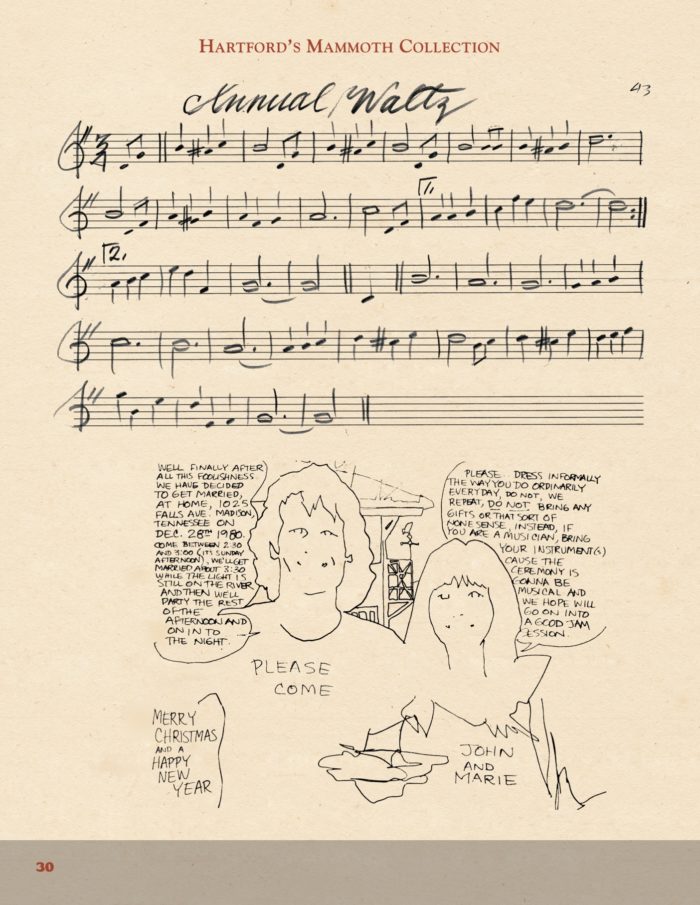 HARTFORD'S MAMMOTH COLLECTION
Annual Waltz
43
3
4
1.
2.
WELL FINALLY AFTER
ALL THIS FOOLISHNESS
WE HAVE DECIDED
TO GET MARRIED,
AT HOME, 1025
FALLS AVE. MADISON,
TENNESSEE ON
DEC. 28TH 1980.
COME BETWEEN 2:30
AND 3:00 (ITS SUNDAY
AFTERNOON), WE'LL GET
MARRIED ABOUT 3:30
WHILE THE LIGHT IS
STILL ON THE RIVER
AND THEN WE'LL
PARTY THE REST
OF THE
AFTERNOON AND
ON IN TO
THE NIGHT.
PLEASE DRESS INFORMALLY
THE WAY YOU DO ORDINARILY
EVERYDAY, DO NOT, WE
REPEAT, DO NOT BRING ANY
GIFTS OR THAT SORT OF
NONESENSE, INSTEAD, IF
YOU ARE A MUSICIAN, BRING
YOUR INSTRUMENT(S)
CAUSE THE
CEREMONY IS
GONNA BE
MUSICAL AND
WE HOPE WILL
GO ON INTO
A GOOD JAM
SESSION.
PLEASE
COME
MERRY
CHRISTMAS
AND A
HAPPY
NEW
YEAR
JOHN
AND
MARIE
30